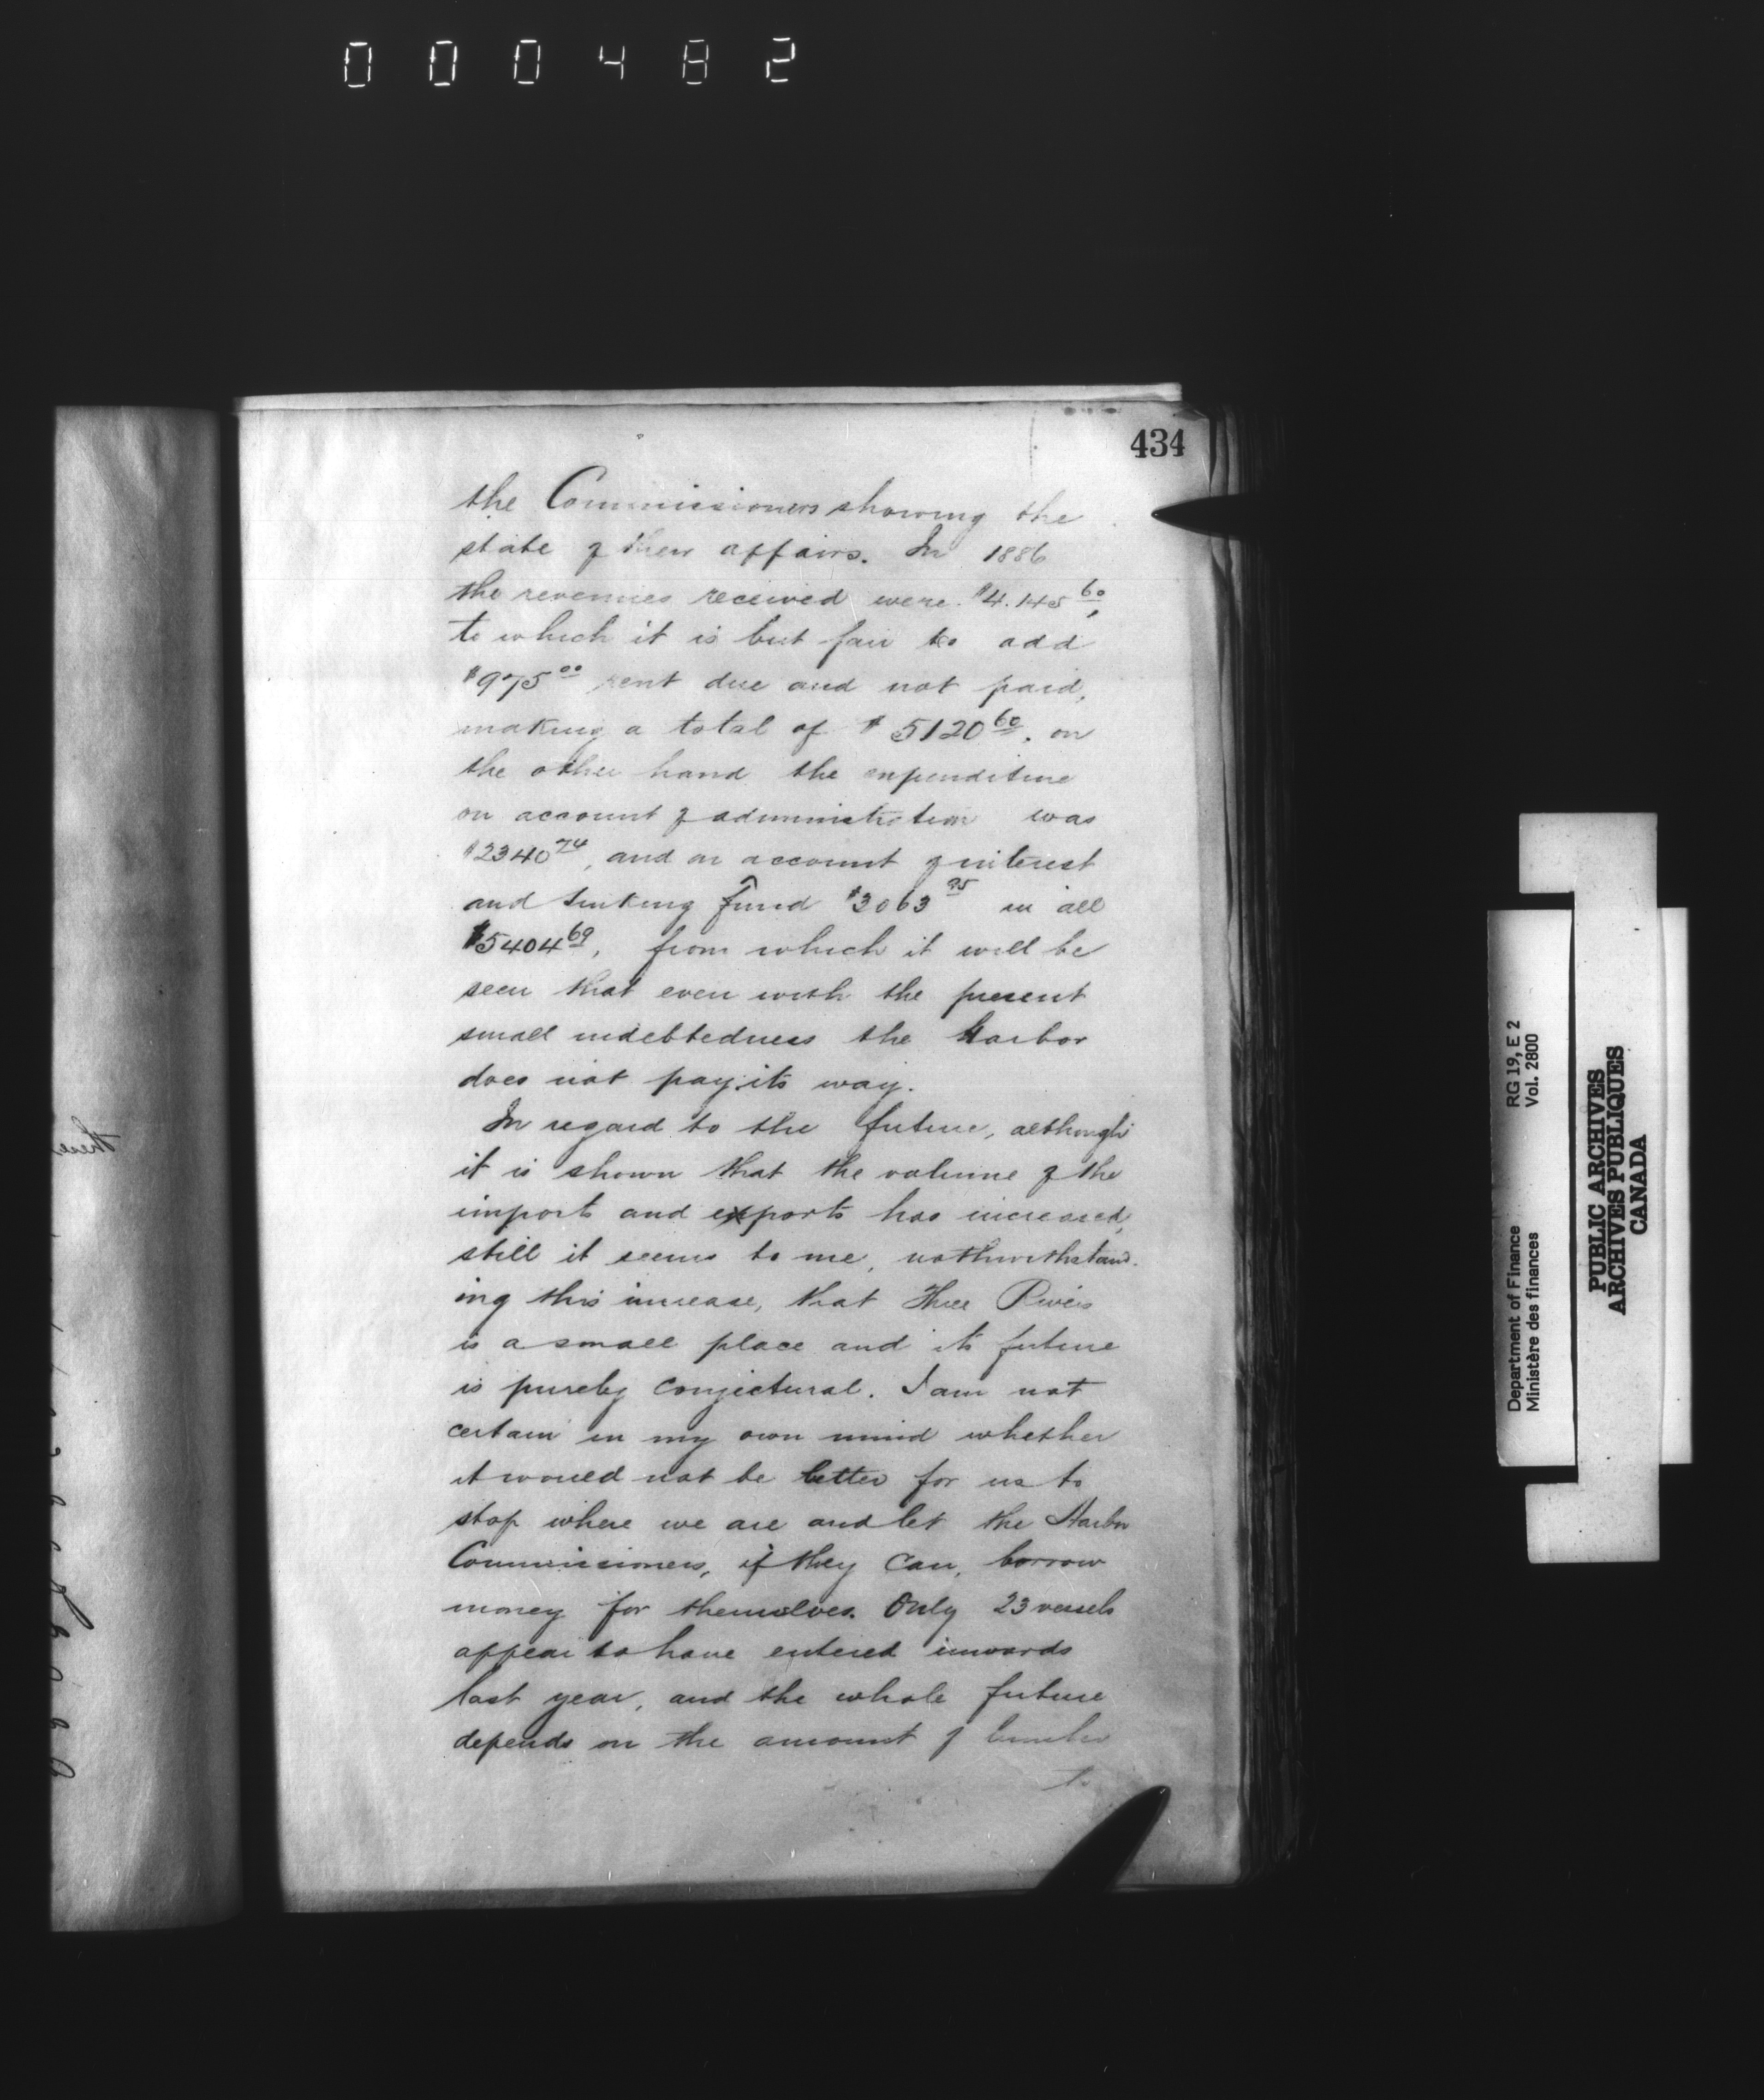 000482
434
the Commissioners showing the
state of their affairs. In 1886
the revenues received were $4.145 60,
to which it is but fair to add
$975 00 rent due and not paid,
making a total of $5120 60. on
the other hand the expenditure
on account of administration was
$2340 74, and on account of interest
and Sinking Fund $3063 95 in all
$5404 69, from which it will be
seen that even with the present
small indebtedness the Harbor
does not pay its way.
In regard to the future, although
it is shown that the volume of the
imports and exports has increased,
still it seems to me, nothwithstand-
ing this increase, that Three Rivers
is a small place and its future
is purely conjectural. I am not
certain in my own mind whether
it would not be better for us to
stop where we are and let the Harbor
Commissioners, if they can, borrow
money for themselves. Only 23 vessels
appear to have entered inwards
last year, and the whole future
depends on the amount of lumber
to
Department of Finance RG 19, E 2
Ministère des finances Vol. 2800
PUBLIC ARCHIVES
ARCHIVES PUBLIQUES
CANADA